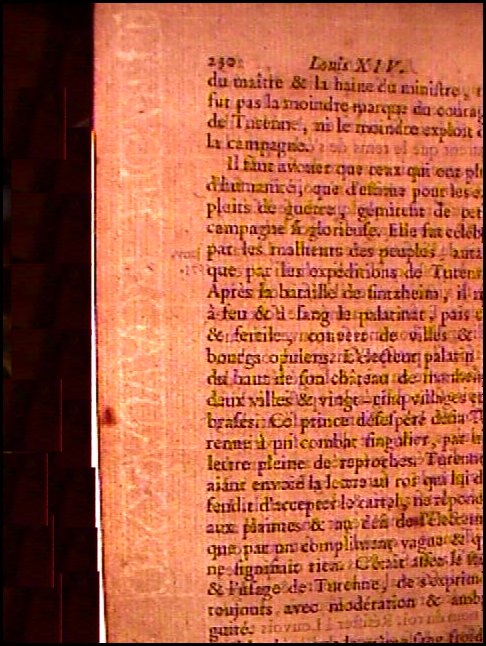 230. Louis XIV.
du maître & la haine du ministre,
fut pas la moindre marque du courag
de Turenne, ni le moindre exploit
la campagne.
Il faut avouer que ceux qui ont pl
d'humanité, que d'estime pour les
ploits de guerre, gémirent de cet
campagne si glorieuse. Elle fut célèb
par les malheurs des peuples, auta
que par les expéditions de Turen
Après la bataille de sintzheim, il m
à feu & à sang le palatinat, pais
& fertile, couvert de villes &
bourgs opulens. L'électeur palatin
du haut de son château de manheim
deux villes & vingt-cinq villages
brasés. Ce prince désespéré défia T
renne à un combat singulier, par
lettre pleine de reproches. Turenne
aiant envoié la lettre au roi qui lui d
fendit d'accepter le cartel, ne répond
aux plaintes & au défi de l'électeur
que par un compliment vague & q
ne signifiait rien. C'était assez le
& l'usage de Turenne, de s'exprim
toujours avec modération & amb
guité.
même sang froid